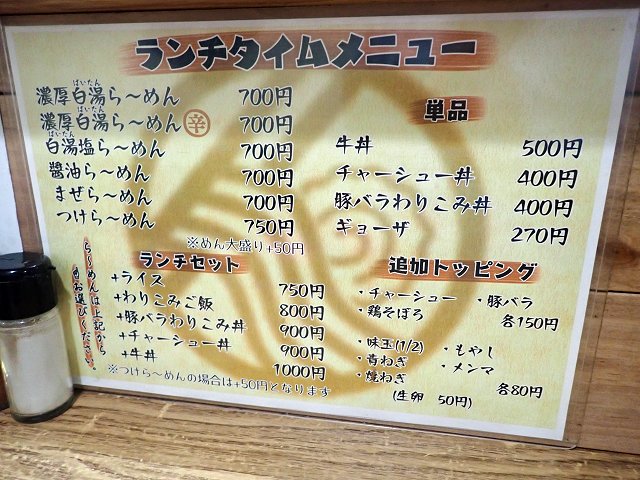 ランチタイムメニュー
ぱいたん
濃厚白湯ら〜めん 700円
ぱいたん
濃厚白湯ら〜めん 辛 700円
ぱいたん
白湯塩ら〜めん 700円
醤油ら〜めん 700円
まぜら〜めん 700円
つけら〜めん 750円
※めん大盛り+50円
ランチセット
ら〜めんは上記から
お選びください。
+ライス 750円
+わりこみご飯 800円
+豚バラわりこみ丼 900円
+チャーシュー丼 900円
+牛丼 1000円
※つけら〜めんの場合は+50円となります
単品
牛丼 500円
チャーシュー丼 400円
豚バラわりこみ丼 400円
ギョーザ 270円
追加トッピング
・チャーシュー ・豚バラ
・鶏そぼろ 各150円
・味玉(1/2) ・もやし
・青ねぎ ・メンマ
・焼ねぎ 各80円
(生卵 50円)